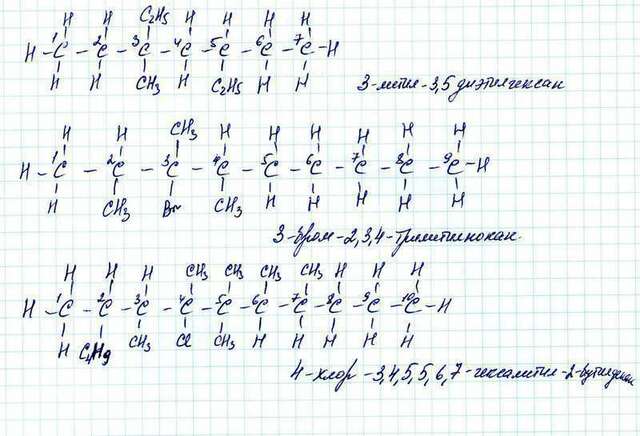 H H C₂H₅ H H H H
H - ¹C - ²C - ³C - ⁴C - ⁵C - ⁶C - ⁷C - H
H H CH₃ H C₂H₅ H H
3-метил-3,5 диэтилгексан
H H CH₃ H H H H H H
H - ¹C - ²C - ³C - ⁴C - ⁵C - ⁶C - ⁷C - ⁸C - ⁹C - H
H CH₃ Br CH₃ H H H H H
3-бром-2,3,4-триметилнокан
H H H CH₃ CH₃ CH₃ CH₃ H H H
H - ¹C - ²C - ³C - ⁴C - ⁵C - ⁶C - ⁷C - ⁸C - ⁹C - ¹⁰C - H
H C₄H₉ CH₃ Cl CH₃ H H H H H
4-хлор-3,4,5,5,6,7-гексаметил-2-бутилдекан